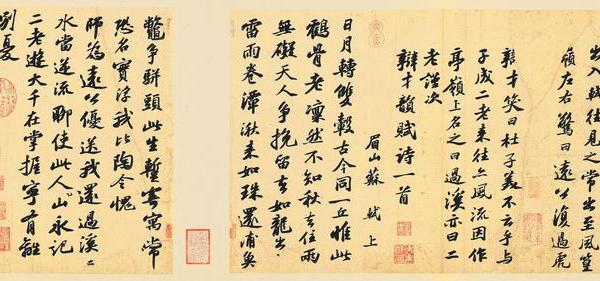 出入軾往見之常出至風篁
嶺左右驚曰遠公復過虎
辯才笑曰杜子美不云乎與
子成二老来往亦風流因作
亭嶺上名之曰過溪亦曰二
老謹次
辯才韻賦詩一首
眉山蘇軾上
日月轉雙轂古今同一丘惟此
鶴骨老凛然不知秋去住兩
無礙天人争挽留去如龍出
雷雨卷潭湫来如珠還浦魚
鼈争駢頭此生暫寄寓常
恐名實浮我比陶令愧
師為遠公優送我還過溪〻
水當逆流聊使此人山永記
二老遊大千在掌握寧有離
別憂